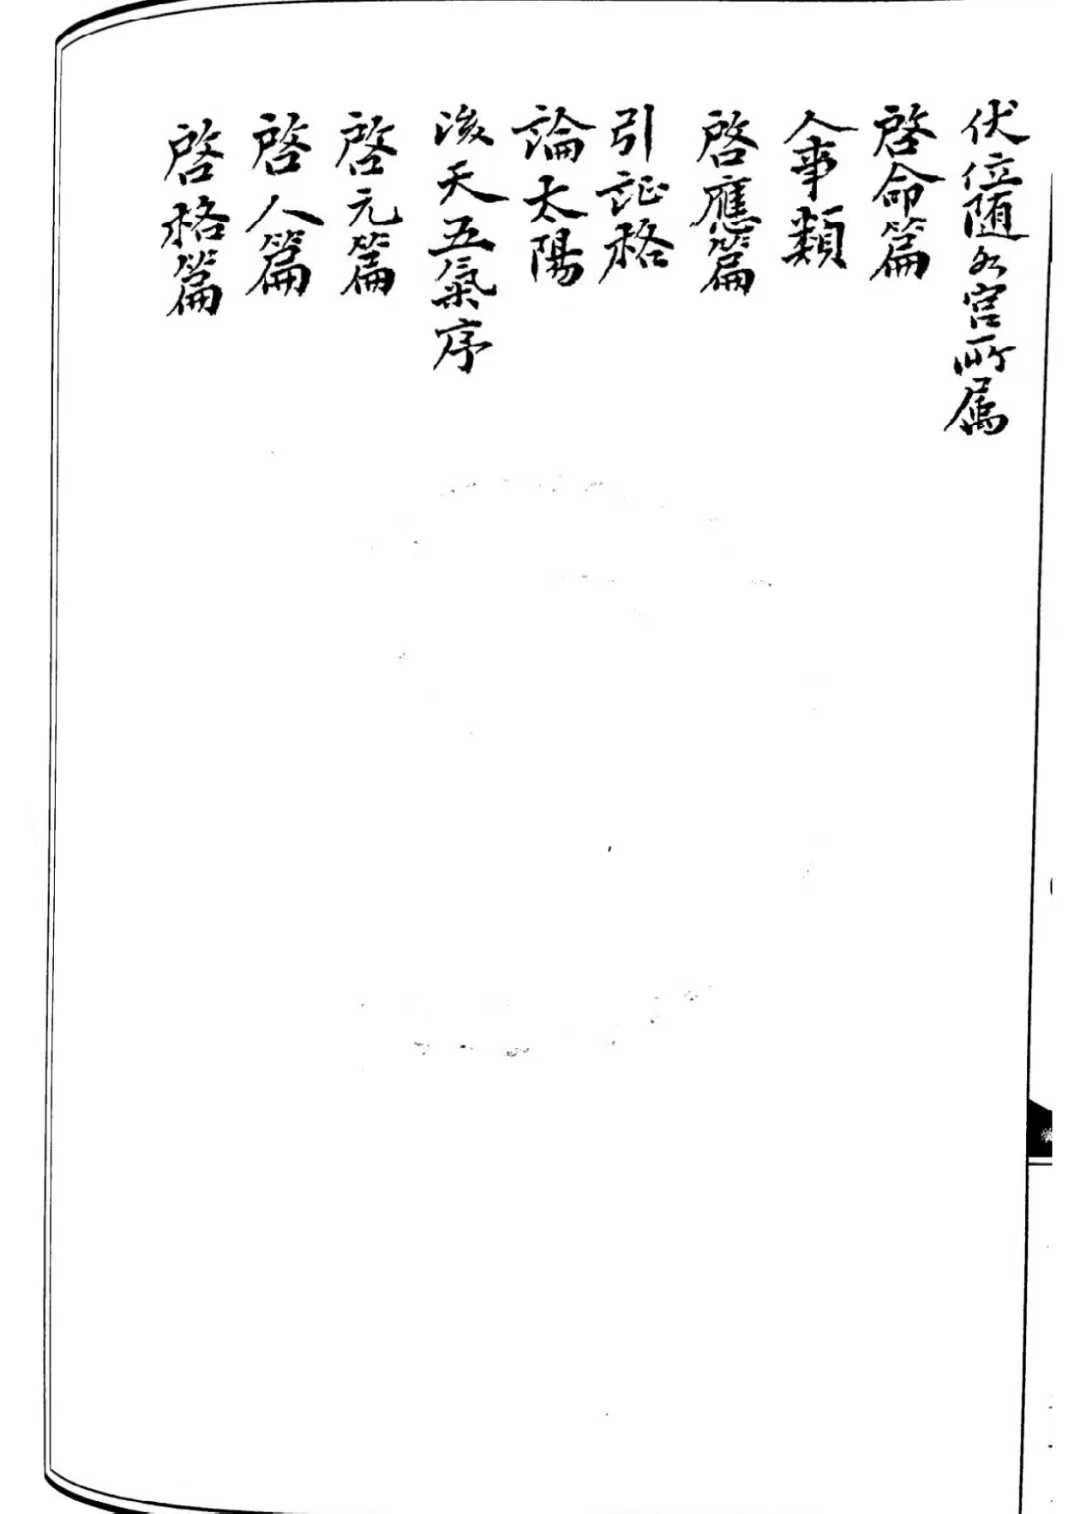 伏位隨各宮所属
啓命篇
人事類
啓應篇
引証格
論太陽
後天五氣序
啓元篇
啓人篇
啓格篇